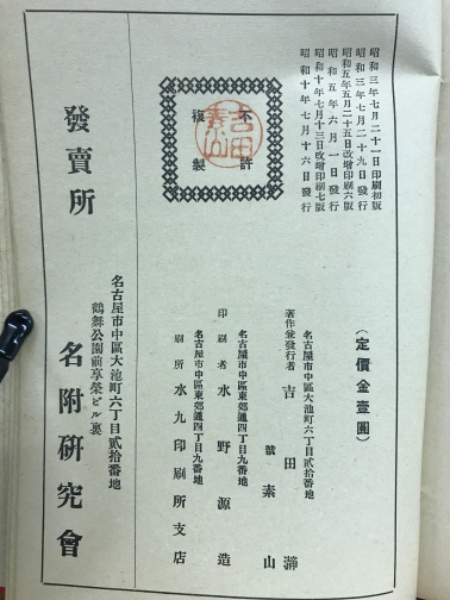 昭和三年七月二十一日印刷初版
昭和三年七月二十九日發行
昭和五年五月二十五日改增印刷六版
昭和五年六月一日發行
昭和十年七月十三日改增印刷七版
昭和十年七月十六日發行
不許
複製
吉田
素山
(定價金壹圓)
名古屋市中區大池町六丁目貳拾番地
著作兼發行者 吉田
號 素山
名古屋市中區東郊通四丁目九番地
印刷者 水野源造
名古屋市中區東郊通四丁目九番地
刷所 水九印刷所支店
名古屋市中區大池町六丁目貳拾番地
鶴舞公園前享榮ビル裏
發賣所 名附硏究會